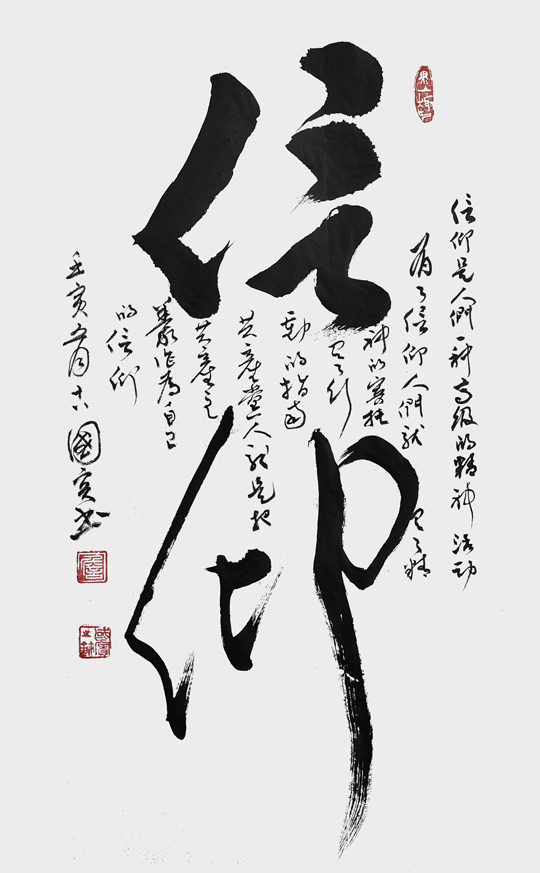 信仰
信仰是人們一种高级的精神活動
有了信仰人們就有了精
神的寄托
有了行
動的指南
共產黨人就是把
共產主
義作為自己
的信仰
壬寅五月十六國寅书